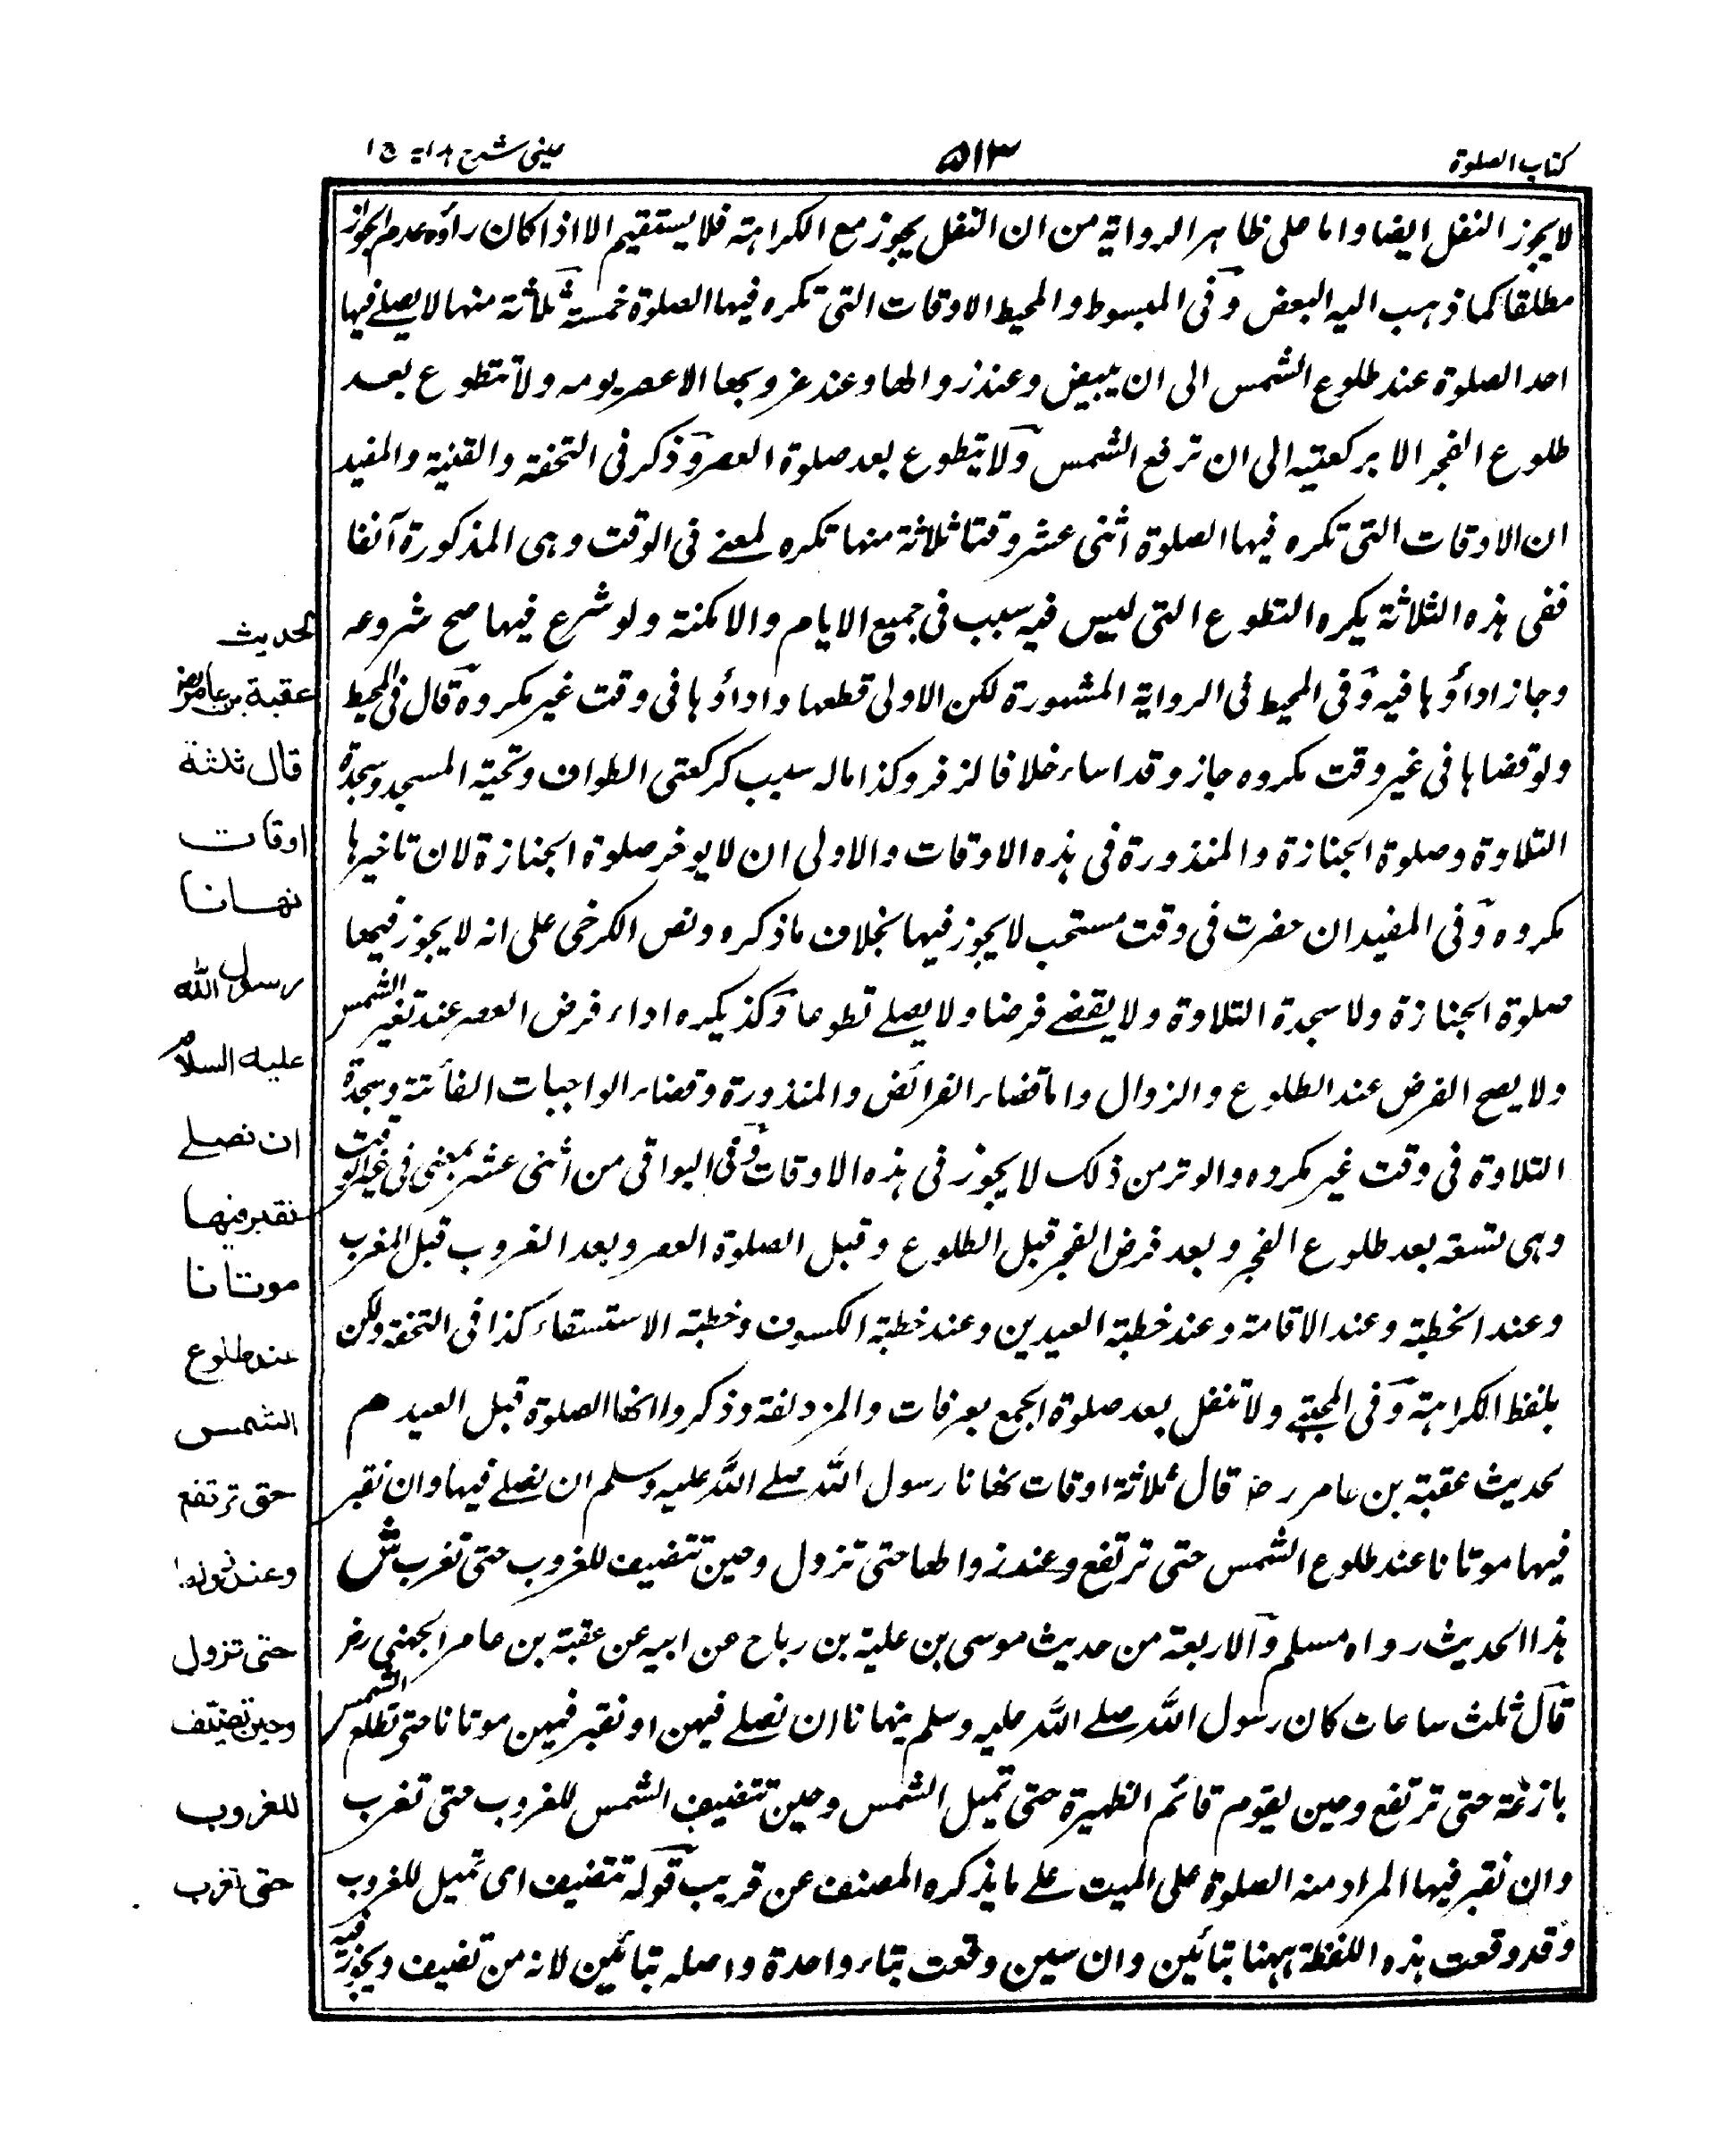 كتاب الصلوة
٥١٣
عينى شرح هداية ج ١
لا يجوز النفل ايضا واما على ظاهر الرواية من ان النفل يجوز مع الكراهته فلا يستقيم الا اذا كان رأوه عدم الجواز
مطلقا كما ذهب اليه البعض وفى المبسوط والمحيط الاوقات التى تكره فيها الصلوة خمسة ثلاثة منها لا يصلے فيها
احد الصلوة عند طلوع الشمس الى ان يبيض وعند زوالها وعند غروبها الا عصر يومه ولا تتطوع بعد
طلوع الفجر الا بركعتيه الى ان ترفع الشمس ولا يتطوع بعد صلوة العصر وذكر فى التحفة والقنية والمفيد
ان الاوقات التى تكره فيها الصلوة اثنى عشر وقتا ثلاثة منها تكره لمعنے فى الوقت وهى المذكورة آنفا
ففى هذه الثلاثة يكره التطوع التى ليس فيه سبب فى جميع الايام والامكنة ولو شرع فيها صح شروعه
وجاز اداؤها فيه وفى المحيط فى الرواية المشهورة لكن الاولى قطعها واداؤها فى وقت غير مكروه قال فى المحيط
ولو قضاها فى غير وقت مكروه جاز وقد اساء خلافا لزفر وكذا ماله سبب كركعتى الطواف وتحية المسجد وسجدة
التلاوة وصلوة الجنازة والمنذورة فى هذه الاوقات والاولى ان لا يوخر صلوة الجنازة لان تاخيرها
مكروه وفى المفيد ان حضرت فى وقت مستحب لا يجوز فيها بخلاف ما ذكره ونص الكرخى على انه لا يجوز فيها
صلوة الجنازة ولا سجدة التلاوة ولا يقضے فرضا ولا يصلے تطوعا وكذ يكره اداء فرض العصر عند تغير الشمس
ولا يصح الفرض عند الطلوع والزوال واما قضاء الفرائض والمنذورة وقضاء الواجبات الفائتة وسجدة
التلاوة فى وقت غير مكروه والوتر من ذلك لا يجوز فى هذه الاوقات وفى البواقى من اثنى عشر بمعنى فى غير الوقت
وهى تسعة بعد طلوع الفجر وبعد فرض الفجر قبل الطلوع وقبل الصلوة العصر وبعد الغروب قبل المغرب
وعند الخطبة وعند الاقامة وعند خطبة العيدين وعند خطبة الكسوف وخطبة الاستسقاء كذا فى التحفة ولكن
بلفظ الكراهته وفى المجتبے ولا تنفل بعد صلوة الجمع بعرفات والمزدلفة وذكروا انها الصلوة قبل العيد م
لحديث عقبة بن عامر رض قال ثلاثة اوقات نهانا رسول الله صلے الله عليه وسلم ان نصلے فيها وان نقبر
فيها موتانا عند طلوع الشمس حتى ترتفع وعند زوالها حتى تزول وحين تتضيف للغروب حتى تغرب ش
هذا الحديث رواه مسلم والاربعة من حديث موسى بن علية بن رباح عن ابيه عن عقبة بن عامر الجهنى رض
قال ثلث ساعات كان رسول الله صلے الله عليه وسلم ينهانا ان نصلے فيهن او نقبر فيهن موتانا حتى تطلع الشمس
بازغة حتى ترتفع وحين يقوم قائم الظهيرة حتى تميل الشمس وحين تتضيف الشمس للغروب حتى تغرب
وان نقبر فيها المراد منه الصلوة على الميت علے ما يذكره المصنف عن قريب قوله تتضيف اى تميل للغروب
وقد وقعت هذه اللفظة ههنا بتائين وان سين وقعت بتاء واحدة واصله بتائين لانه من تضيف ويجوز فيه
لحديث
عقبة بن عامر رض
قال ثلثة
اوقات
نهانا
رسول الله
عليه السلام
ان نصلے
نقبر فيها
موتانا
عند طلوع
الشمس
حتى ترتفع
وعند زوالها
حتى تزول
وحين تضيف
للغروب
حتى تغرب